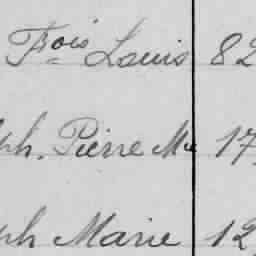 Fois Louis 82
ph. Pierre Mie 17
ph Marie 12